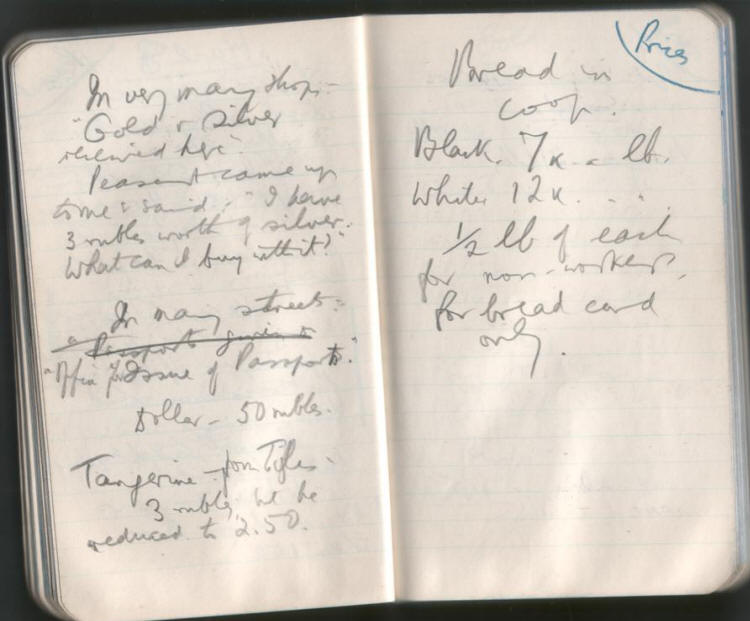 In very many shops -
"Gold & silver
received here".
Peasant came up
to me & said: "I have
3 rubles worth of silver.
What can I buy with it?"
In many streets:
a Passport given to
"Office for Issue of Passports."
Dollar - 50 rubles.
Tangerine - from Tiflis -
3 rubles, but he
reduced to 2.50.
Prices
Bread in
coop.
Black. 7k. a lb.
White 12k. " ".
1/2 lb of each
for non-workers,
for bread card
only.